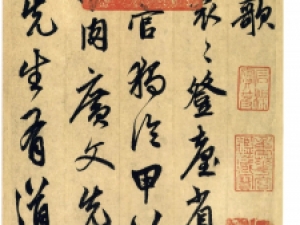 歌
袞〻登臺省
官獨冷甲
肉廣文先
先生有道